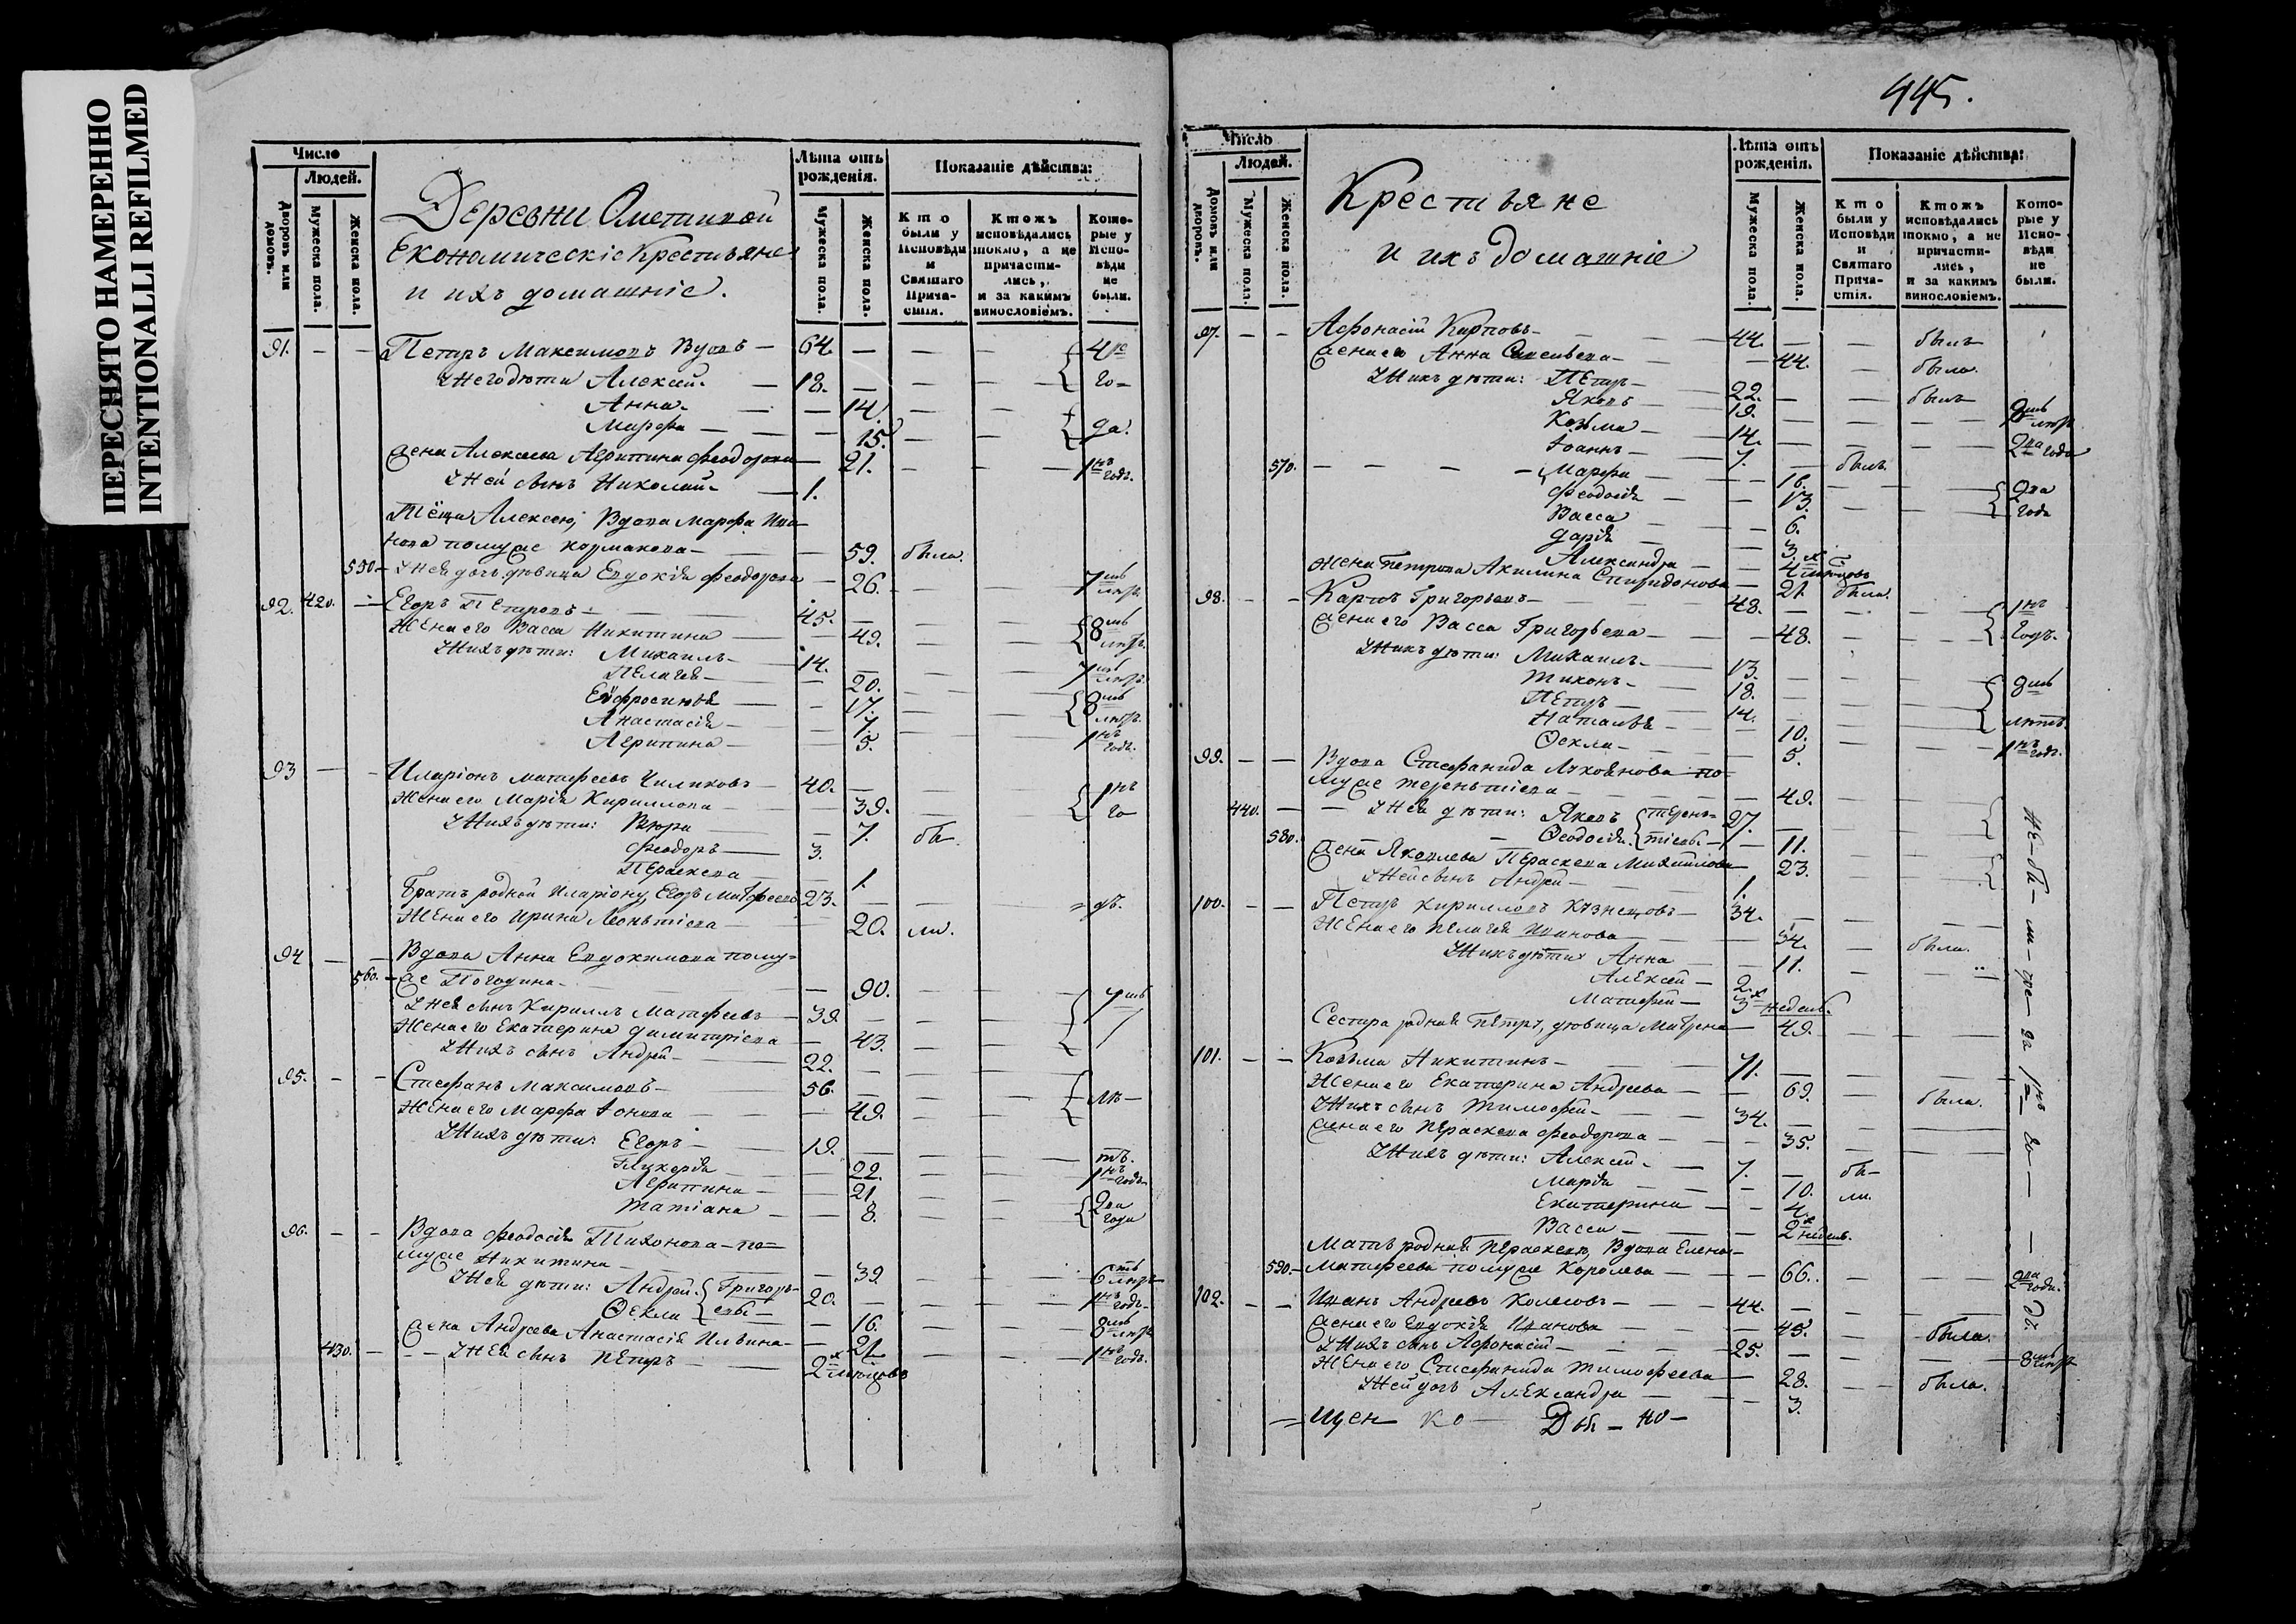 ПЕРЕСНЯТО НАМЕРЕННО
INTENTIONALLI REFILMED
445.
Число
Людей.
Дворовъ или домовъ.
Мужеска пола.
Женска пола.
Деревни
Економическіе Крестьяне
и ихъ домашніе.
Лѣта отъ рожденія.
Мужеска пола.
Женска пола.
Показаніе дѣйства:
Кто были у Исповѣди и Святаго Прича-стія.
Ктожъ исповѣдались токмо, а не причасти-лись, и за какимъ винословіемъ.
Кото-рые у Испо-вѣди не были.
91. — — Петръ Максимовъ Вдовъ — 64. — — — 4ре
У него дѣти Алексѣй — 18. — — — го-
Анна — — 14. — —
Марфа — — 15. — — да.
Жена Алексѣева Агрипина Феодорова — 21. — — 1нъ годъ.
У ней сынъ Николай — 1.
Тёща Алексѣю, Вдова Марфа Ива-
нова помуже — — 59. была.
550. — У нея дочь дѣвица Евдокія Феодорова — 26. — — 7мь лѣтъ
92. 420. — Егоръ Петровъ — 45. — — —
Жена его Васса Никитина — — 49. — — 8мь лѣтъ.
У нихъ дѣти: Михаилъ — 14. — — — 7мь лѣтъ
Пелагея — — 20. — —
Евфросинія — — 17. — — 8мь лѣтъ.
Анастасія — — 7. — —
Агрипина — — 5. — — 1нъ годъ.
93 — — Иларіонъ Матфеевъ Чиликовъ — 40. — — — 1нъ
Жена его Марія Кирилова — — 39. — — го-
У нихъ дѣти: — — 7. бы-
Феодоръ — 3.
Параскева — — 1.
Братъ родной Иларіону, Егоръ Матфеевъ 23. — — — дъ.
Жена его Ирина Леонтіева — — 20. ли.
94 — — Вдова Анна Евдокимова пому-
560. — же Погодина — — 90. — —
У нея сынъ Кириллъ Матфеевъ — 39. — — — 7мь
Жена его Екатерина Димитріева — 43. — —
У нихъ сынъ Андрей — 22. — — —
95. — — Стефанъ Максимовъ — 56. — — —
Жена его Марфа Іонова — — 49. — — лѣ-
У нихъ дѣти: Егоръ — 19. — — — тъ.
Гликерія — — 22. — — 1нъ годъ.
Агрипина — — 21. — —
Татіана — — 8. — — 2ва года
96. — — Вдова Феодосія Тихонова — по-
муже Никитина — — 39. — — 6сть лѣтъ
У нея дѣти: Андрей Григорь- 20. — — — 1нъ годъ.
Ѳекла евы — — 16. — — 8мь лѣтъ
Жена Андреева Анастасія Ильина — — 21. — — 1нъ годъ.
430. — — У ней сынъ Петръ — 2х мѣсяцовъ
Число
Людей.
Домовъ или дворовъ.
Мужеска пола.
Женска пола.
Крестьяне
и ихъ домашніе
Лѣта отъ рожденія.
Мужеска пола.
Женска пола.
Показаніе дѣйства:
Кто были у Исповѣди и Святаго Прича-стія.
Ктожъ исповѣдались токмо, а не причасти-лись, и за какимъ винословіемъ.
Кото-рые у Испо-вѣди не были.
97. — — Афонасій Карповъ — 44. — — былъ
Жена его Анна — — 44. — была.
У нихъ дѣти: Петръ — 22. — — былъ
Яковъ — 19. — — — лѣтъ
Козьма — 14. — — — 2ва года
Іоаннъ — 7. — былъ
570. — — — — Марфа — — 16. — —
Феодосія — — 13. — — 2ва года
Васса — — 6.
Дарія — — 3.
Александра — — 4 мѣсяцовъ
Жена Петрова Акилина Спиридонова — 21. была.
98. — — Карпъ Григорьевъ — 48. — — — 1нъ
Жена его Васса Григорьева — — 48. — — годъ.
У нихъ дѣти: Михаилъ — 13. — — —
Тихонъ — 18. — — — 8мь
Петръ — 14. — — — лѣтъ.
Наталья — — 10. — —
Ѳекла — — 5. — — 1нъ годъ.
99. — — Вдова Стефанида Лукоянова по-
муже Терентіева — — 49. — —
440. — — У нея дѣти: Яковъ Терен- 27. — — —
580. — Феодосія тіевы — 11. — —
Жена Яковлева Параскева Михаилова — 23. — —
У ней сынъ Андрей — 1.
100. — — Петръ Кириловъ Кузнецовъ — 34. — — —
Жена его Пелагея Иванова — — 34. — была.
У нихъ дѣти Анна — — 11. — —
Алексѣй — 2.
Матфей — 3х недель.
Сестра родная Петру, дѣвица Матрена — 49. — —
101. — — Козьма Никитинъ — 71. — — —
Жена его Екатерина Андреева — — 69. — была.
У нихъ сынъ Тимофей — 34. — — —
Жена его Параскева Феодорова — — 35. — —
У нихъ дѣти: Алексѣй — 7. — бы-
Марія — — 10. ли.
Екатерина — — 4.
Васса — — 2х недель.
Мать родная Параскевѣ, Вдова Елена
590. — Матфеева помуже Королева — — 66. — — 2ва года.
102. — — Иванъ Андреевъ Колесовъ — 44. — — —
Жена его Евдокія Иванова — — 45. — была.
У нихъ сынъ Афонасій — 25. — — — 8мь лѣтъ
Жена его Стефанида Тимофеева — 28. — была.
У ней дочь Александра — — 3.
не-бы-ли-же за 1нъ го-дъ